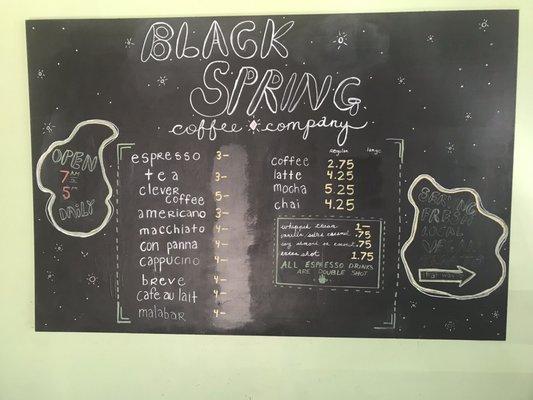 BLACK
SPRING
coffee company
OPEN
7 AM
5
DAILY
espresso 3-
tea 3-
clever
coffee 5-
americano 3-
macchiato 4-
con panna 4-
cappucino 4-
breve 4-
Café au lait 4-
malabar 4-
regular large
coffee 2.75
latte 4.25
mocha 5.25
chai 4.25
whipped cream 1-
vanilla salted caramel .75
soy almond or coconut .75
extra shot 1.75
ALL ESPRESSO DRINKS
ARE DOUBLE SHOT
SPRING
FRESH
LOCAL
that way